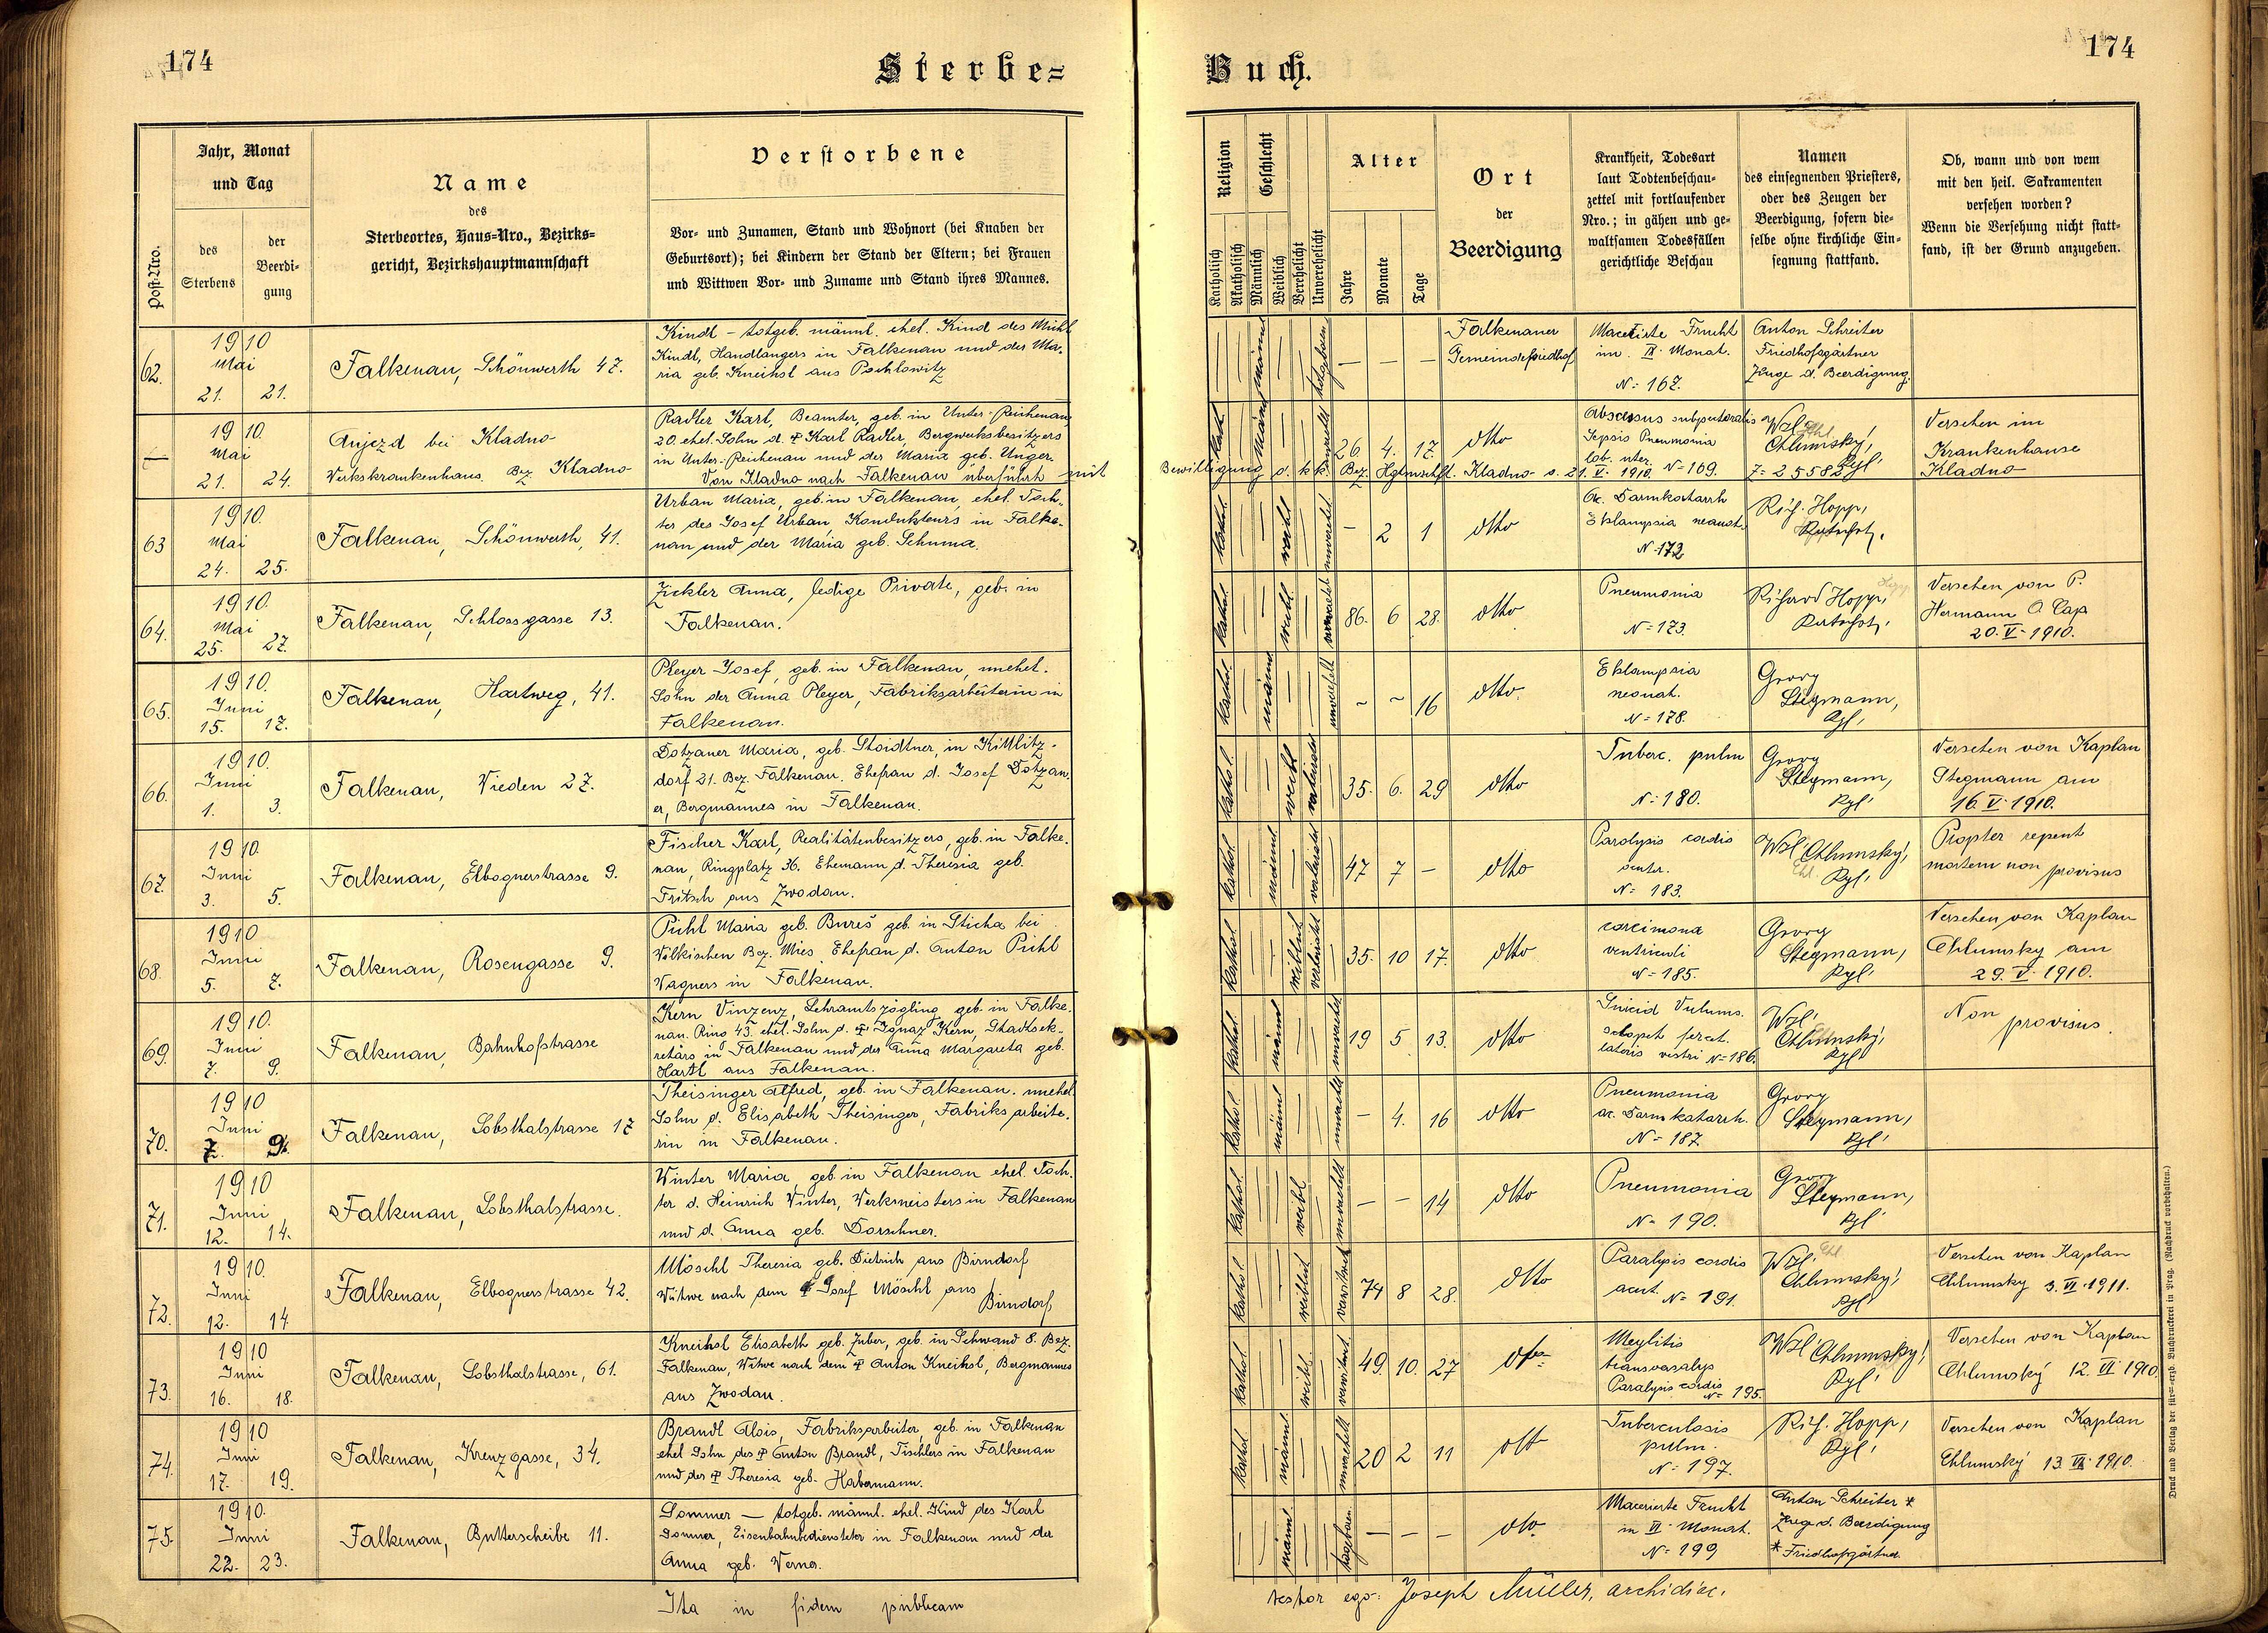 174
Sterbe=
Jahr, Monat
und Tag
Name
des
Sterbeortes, Haus=Nro., Bezirks=
gericht, Bezirkshauptmannschaft
Verstorbene
Vor= und Zunamen, Stand und Wohnort (bei Knaben der
Geburtsort); bei Kindern der Stand der Eltern; bei Frauen
und Wittwen Vor= und Zuname und Stand ihres Mannes.
Post=Nro.
des
Sterbens
der
Beerdi=
gung
62.
1910
Mai
21. 21.
Falkenau, Schönwerth 47.
Kindl – totgeb. männl. ehel. Kind des Michl
Kindl, Handlangers in Falkenau und der Ma-
ria geb. Kneissl aus Pochlowitz
—
1910.
Mai
21. 24.
Aujezd bei Kladno
Werkskrankenhaus Bez. Kladno
Radler Karl, Beamter, geb. in Unter-Reichenau
20. ehel. Sohn d. † Karl Radler, Bergwerksbesitzers
in Unter-Reichenau und der Maria geb. Unger.
Von Kladno nach Falkenau überführt mit
63
1910.
Mai
24. 25.
Falkenau, Schönwerth, 41.
Urban Maria, geb. in Falkenau, ehel. Toch-
ter des Josef Urban, Kondukteurs in Falke-
nau und der Maria geb. Schuma.
64.
1910.
Mai
25. 27.
Falkenau, Schlossgasse 13.
Zickler Anna, ledige Private, geb. in
Falkenau.
65.
1910.
Juni
15. 17.
Falkenau, Hartweg, 41.
Pleyer Josef, geb. in Falkenau, unehel.
Sohn der Anna Pleyer, Fabriksarbeiterin in
Falkenau.
66.
1910.
Juni
1. 3.
Falkenau, Wieden 27.
Dotzauer Maria, geb. Stoidtner, in Kittlitz-
dorf 21. Bez. Falkenau. Ehefrau d. Josef Dotzau-
er, Bergmannes in Falkenau.
67.
1910.
Juni
3. 5.
Falkenau, Elbognerstrasse 9.
Fischer Karl, Realitätenbesitzers, geb. in Falke-
nau, Ringplatz 36. Ehemann d. Theresia geb.
Fritsch aus Zwodau.
68.
1910
Juni
5. 7.
Falkenau, Rosengasse 9.
Pichl Maria geb. Bureš geb. in Sticha bei
Wolkischen Bez. Mies. Ehefrau d. Anton Pichl
Wagners in Falkenau.
69.
1910.
Juni
7. 9.
Falkenau, Bahnhofstrasse
Kern Vinzenz, Lehramtszögling, geb. in Falke-
nau. Ring 43. ehel. Sohn d. † Ignaz Kern, Stadtsek-
retärs in Falkenau und der Anna Margareta geb.
Hartl aus Falkenau.
70.
1910
Juni
7. 9.
Falkenau, Lobsthalstrasse 17
Theisinger Alfred, geb. in Falkenau. unehel
Sohn d. Elisabeth Theisinger, Fabriksarbeite-
rin in Falkenau.
71.
1910
Juni
12. 14.
Falkenau, Lobsthalstrasse.
Winter Maria, geb. in Falkenau ehel. Toch-
ter d. Heinrich Winter, Werkmeisters in Falkenau
und d. Anna geb. Dorschner.
72.
1910.
Juni
12. 14
Falkenau, Elbognerstrasse 42.
Möschl Theresia geb. Dietrich aus Birndorf
Witwe nach dem † Josef Möschl aus
Birndorf
73.
1910
Juni
16. 18.
Falkenau, Lobsthalstrasse, 61.
Kneissl Elisabeth geb. Zuber, geb. in Schwand 8. Bez.
Falkenau, Witwe nach dem † Anton Kneissl, Bergmannes
aus Zwodau.
74.
1910
Juni
17. 19.
Falkenau, Kreuzgasse, 34.
Brandl Alois, Fabriksarbeiter, geb. in Falkenau
ehel Sohn des † Anton Brandl, Tischlers in Falkenau
und der † Theresia geb. Habermann.
75.
1910.
Juni
22. 23.
Falkenau, Butterscheibe 11.
Sommer — totgeb. männl. ehel. Kind des Karl
Sommer, Eisenbahnbediensteter in Falkenau und der
Anna geb. Werner.
Ita in fidem publicam
174
Buch.
Religion
Geschlecht
Alter
Ort
der
Beerdigung
Krankheit, Todesart
laut Todtenbeschau=
zettel mit fortlaufender
Nro.; in gähen und ge=
waltsamen Todesfällen
gerichtliche Beschau
Namen
des einsegnenden Priesters,
oder des Zeugen der
Beerdigung, sofern die=
selbe ohne kirchliche Ein=
segnung stattfand.
Ob, wann und von wem
mit den heil. Sakramenten
versehen worden?
Wenn die Versehung nicht statt=
fand, ist der Grund anzugeben.
Katholisch
Akatholisch
Männlich
Weiblich
Verehelicht
Unverehelicht
Jahre
Monate
Tage
männl
totgeboren
— — —
Falkenauer
Gemeindefriedhof
Macerirte Frucht
im IX. Monat.
N= 167.
Anton Schreiter
Friedhofsgärtner
Zeuge d. Beerdigung.
26 4. 17.
dtto
Abscessus subpectoralis
Sepsis Pneumonia
N= 169.
Wzl.
Chlumský,
Kpl.
Versehen im
Krankenhause
Kladno
Bewilligung d. k.k. Bez. Hptmschft. Kladno d. 21. V. 1910. Z= 25582
kathol.
weibl
unverehel.
– 2 1
dtto
Ac. Darmkatarrh
Eklampsia neonat.
N= 172
Rich. Hopp,
kathol.
weibl
86. 6 28.
dtto
Pneumonia
N= 173.
Richard Hopp,
Versehen von P.
Hermann A Cap
20. V. 1910.
kathol.
männl
~ ~ 16
dtto.
Eklampsia
neonat.
N= 178.
Georg
Stegmann,
Kpl.
kathol.
weibl
verheiratet
35. 6. 29
dtto
Tuberc. pulm
N= 180.
Georg
Stegmann,
Kpl.
Versehen von Kaplan
Stegmann am
16. V. 1910.
kathol.
männl
verheiratet
47 7 —
dtto
Paralysis cordis
N= 183.
Wzl Chlumský,
Kpl.
Propter repent
mortem non provisus
kathol.
weiblich
verheiratet
35. 10 17.
dtto
carcinoma
ventriculi
N= 185.
Georg
Stegmann,
Kpl.
Versehen von Kaplan
Chlumsky am
29. V. 1910.
kathol.
männl
19 5 13.
dtto
Suicid Vulnus.
sclopet
lateris N= 186.
Wzl.
Chlumský,
Kpl
Non provisus.
kathol.
männl
– 4. 16
dtto
Pneumonia
ac. Darmkatarrh.
N= 187.
Georg
Stegmann,
Kpl.
kathol.
weibl
– – 14
dtto
Pneumonia
N= 190.
Georg
Stegmann,
Kpl.
kathol.
weiblich
verwitwet
74 8 28.
dtto
Paralysis cordis
acut. N= 191.
Wzl.
Chlumský,
Kpl
Versehen von Kaplan
Chlumsky 3. VI. 1911.
kathol.
weibl.
verwitwet.
49. 10. 27
dto
Paralysis cordis
N= 195.
Wzl Chlumský,
Kpl.
Versehen von Kaplan
Chlumský 12. VI 1910.
kathol
männl.
20 2 11
dtt
Tuberculosis
pulm.
N= 197.
Rich. Hopp,
Kpl.
Versehen von Kaplan
Chlumský 13. VI. 1910.
männl.
totgeboren.
— — —
dto.
Macerierte Frucht
in VI. Monat.
N= 199
Anton Schreiter *
Zeuge d. Beerdigung
* Friedhofsgärtner
testor ego: Joseph Müller, archidiac.
Druck und Verlag der fürst=erzb. Buchdruckerei in Prag. (Nachdruck vorbehalten.)